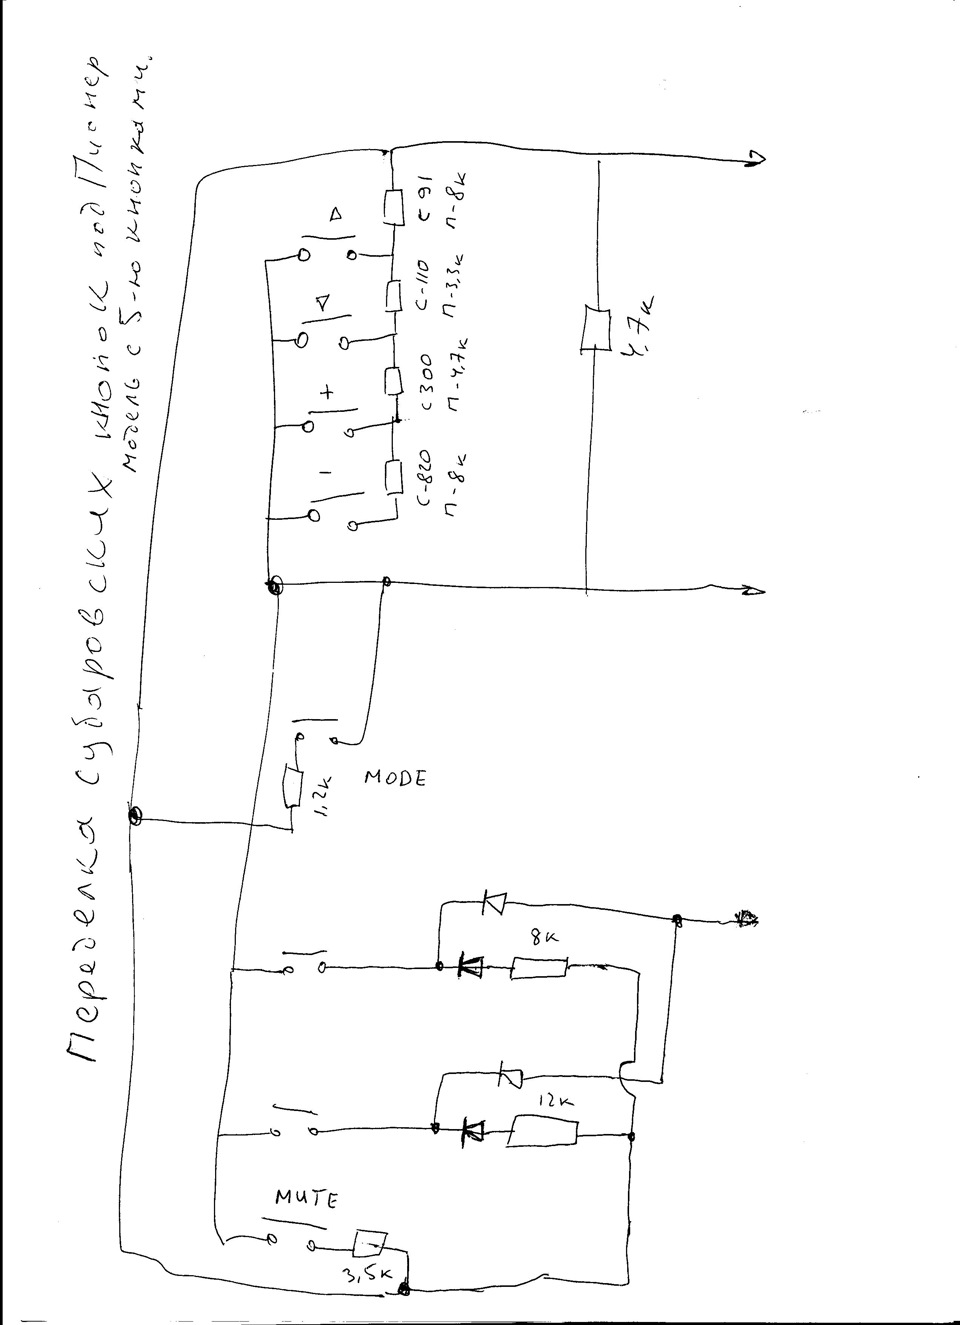 Переделка Субаровских кнопок под Пионер
модель с 5-ю кнопками.
С 91
П-8к
С-110
П-3,3к
С300
П-4,7к
С-820
П-8к
+
-
4,7к
1,2к
MODE
8к
12к
MUTE
3,5к